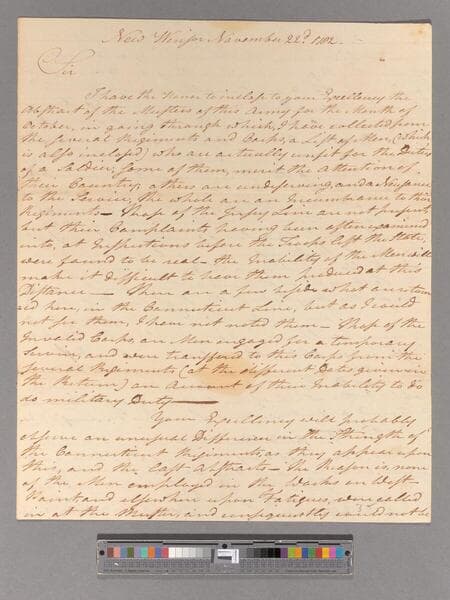 New Winsor November 22d. 1782.
Sir
I have the Honor to inclose to your Excellency the
Abstract of the Musters of this Army for the Month of
October, in going through which, I have collected from
the several Regiments and Corps, a List of Men, (which
is also inclosed) who are actually unfit for the Duties
of a Soldier, some of them, merit the Attention of
their Country, others are undeserving, and a Nuisance
to the Service, the whole are an Incumbrance to their
Regiments— Those of the Jersey Line are not present
but their Complaints having been often examined
into, at Inspections before the Troops left the State,
were found to be real— the Inability of the Men will
make it difficult to have them produced at this
Distance— There are a few besides what are return
ed here, in the Connecticut Line, but as I could
not see them, I have not noted them— Those of the
Invalid Corps, are Men engaged for a temporary
Service, and were transfered to this Corps from the
several Regiments (at the different Dates given in
the Return) on Account of their Inability to do
do military Duty—
Your Excellency will probably
observe an unusual Difference in the Strength of
the Connecticut Regiments, as they appear upon
this, and the last Abstracts— The Reason is, none
of the Men employed in the Works on West
Point and elsewhere upon Fatigues, were called
in at the Muster, and consequently could not be